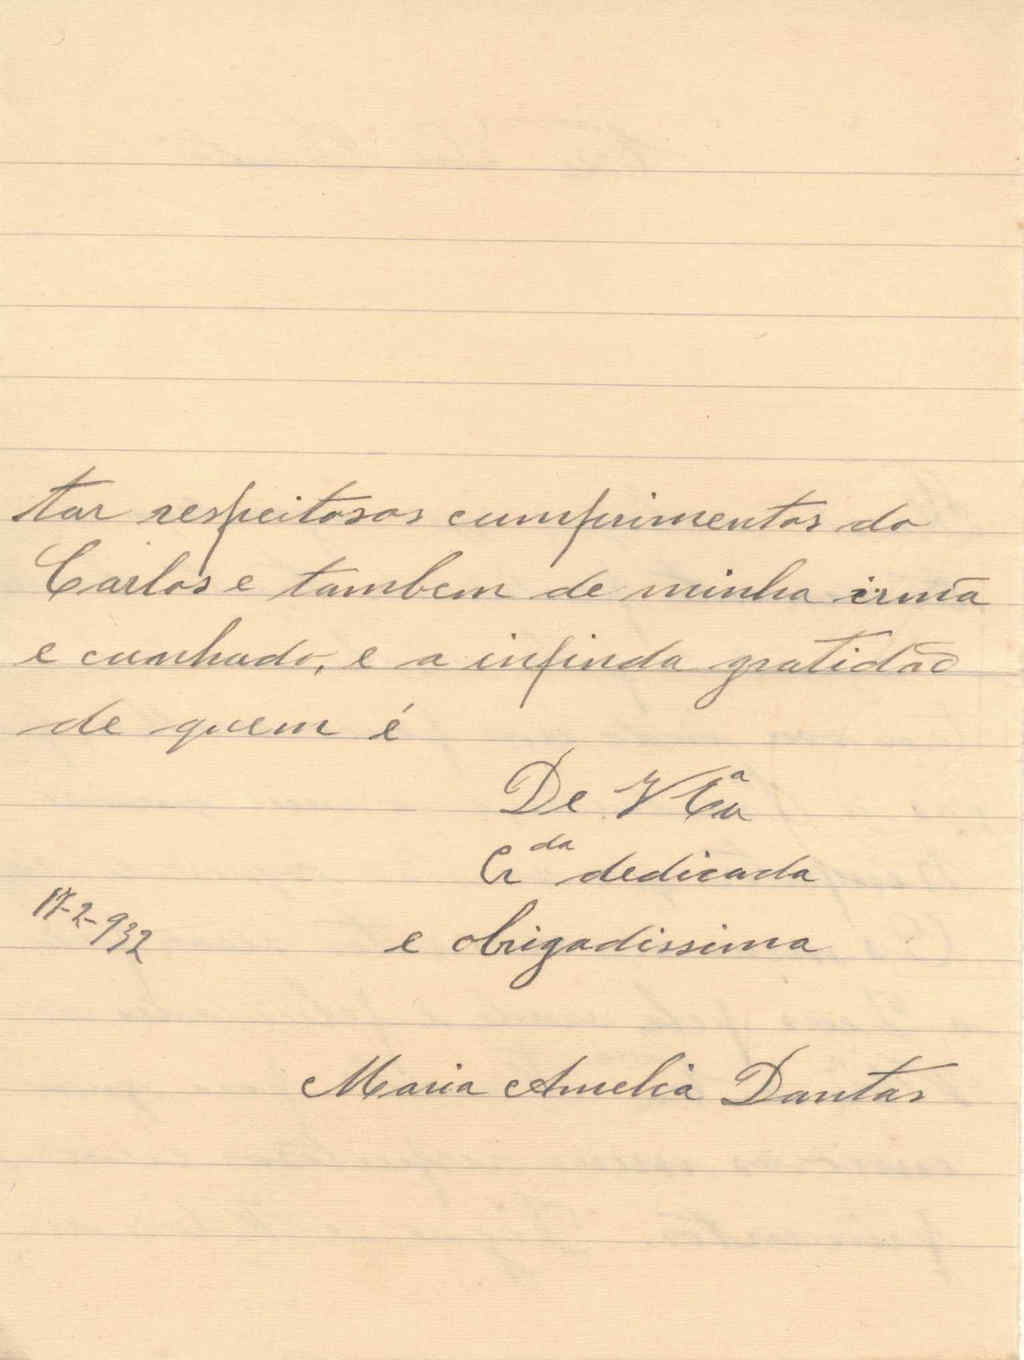 tar respeitosos cumprimentos do
Carlos e tambem de minha irmã
e cunhado, e a infinda gratidão
de quem é
De V Ex.ª
Cr.da dedicada
e obrigadissima
17-2-932
Maria Amelia Dantas